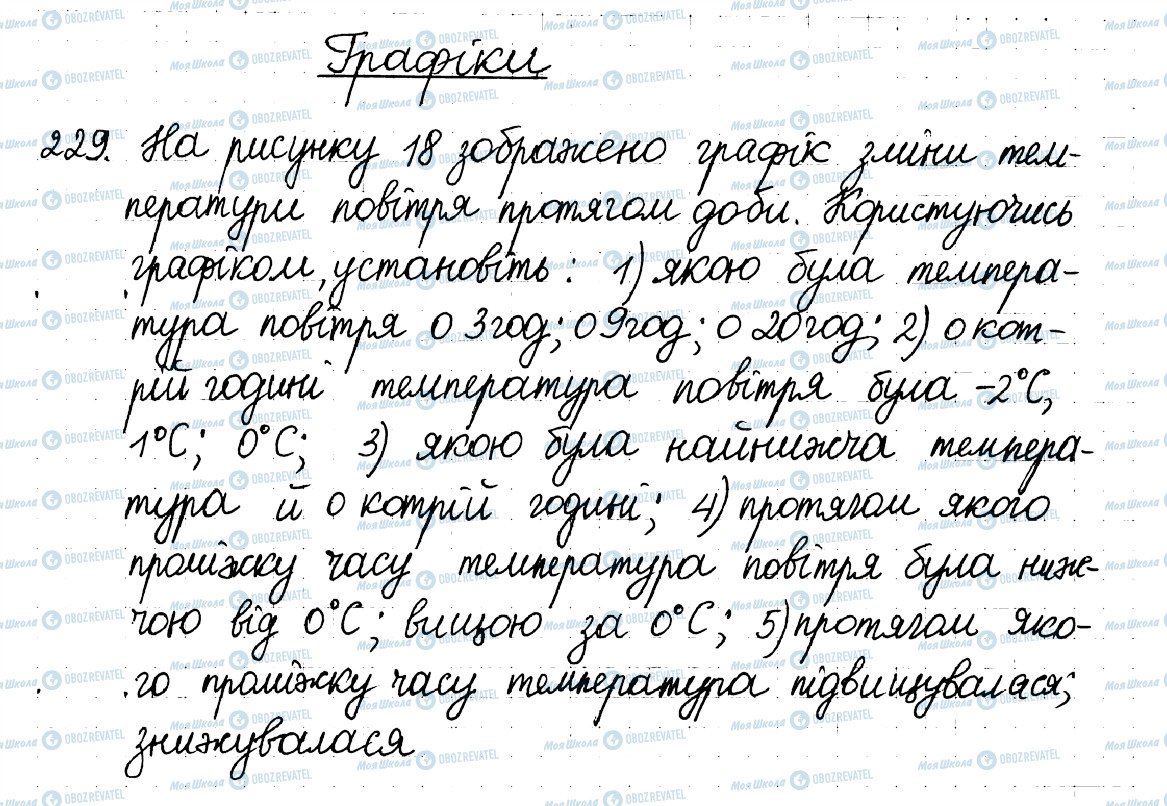 Графіки
229. На рисунку 18 зображено графік зміни тем-
ператури повітря протягом доби. Користуючись
графіком, установіть: 1) якою була темпера-
тура повітря о 3 год; о 9 год; о 20 год; 2) о кот-
рій годині температура повітря була -2°С,
1°С; 0°С; 3) якою була найнижча темпера-
тура й о котрій годині; 4) протягом якого
проміжку часу температура повітря була ниж-
чою від 0°С; вищою за 0°С; 5) протягом яко-
го проміжку часу температура підвищувалася;
знижувалася
МояШкола OBOZREVATEL